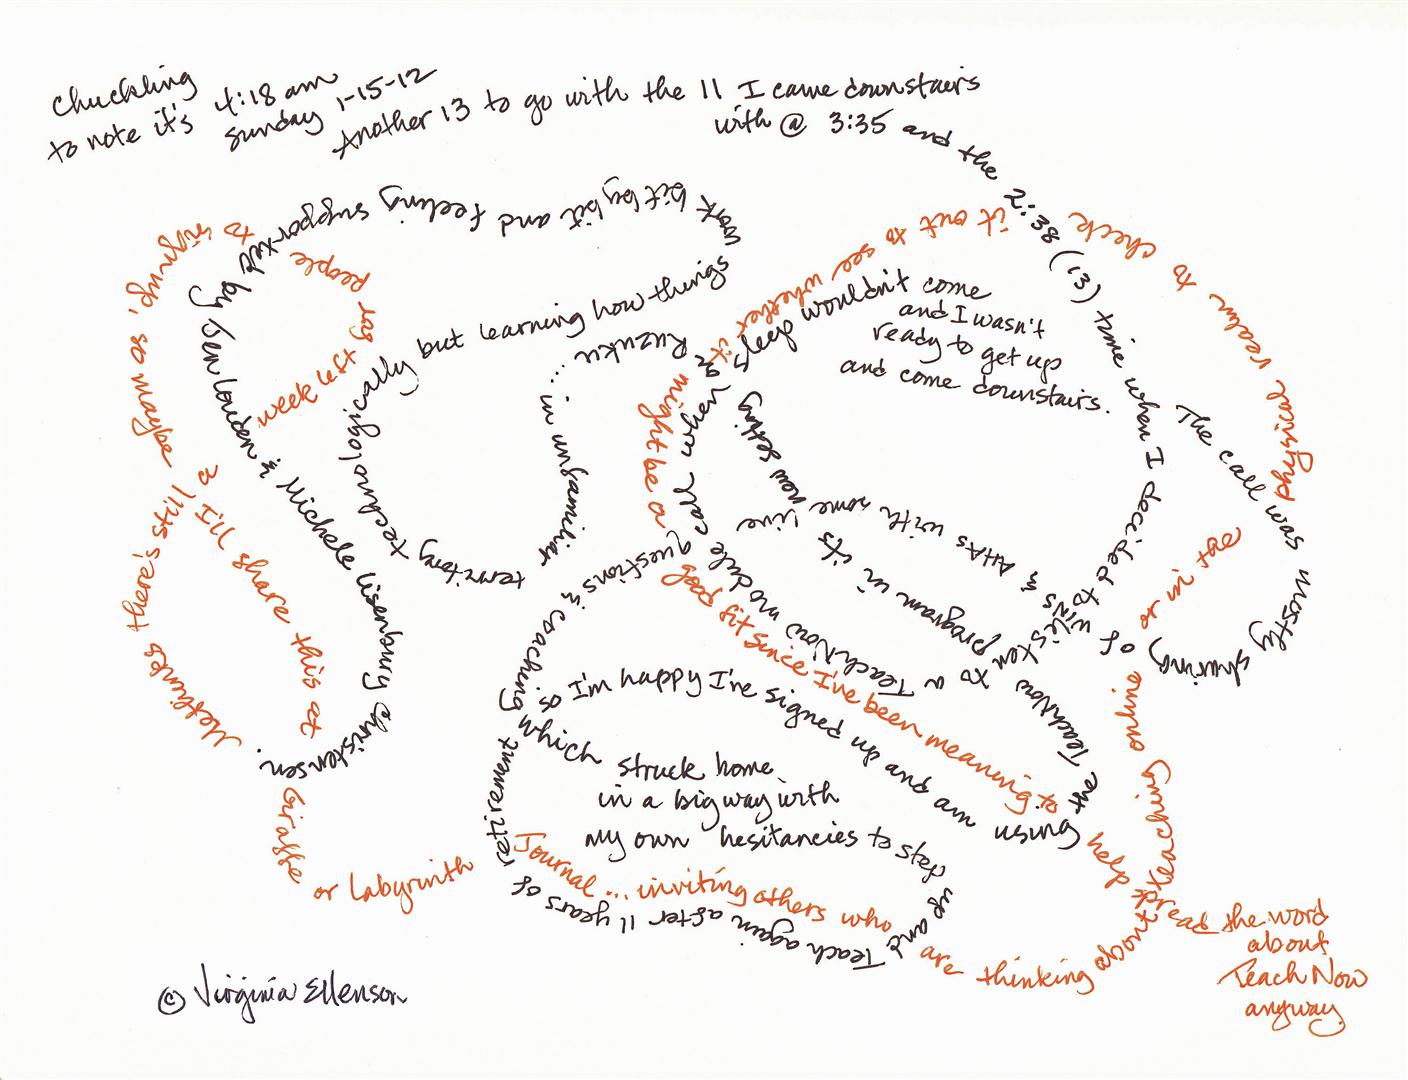 Chuckling
to note it's 4:18 am
Sunday 1-15-12
Another 13 to go with the 11 I came downstairs
with @ 3:35 and the 2:38 (13) time when I decided to listen to a TeachNow module call when sleep wouldn't come
and I wasn't
ready to get up
and come downstairs.
The call was mostly sharing of wins & AHAs with some live questions & coaching which struck home
in a big way with
my own hesitancies to step up and Teach again after 11 years of retirement so I'm happy I've signed up and am using the TeachNow program in its now setting on Ruzuku ... in unfamiliar territory technologically, but learning how things work bit by bit and feeling supported by Jen Louden & Michele Lisenbury Christensen.
Methinks there's still a week left for people to sign up, so maybe I'll share this at Giraffe or Labyrinth Journal ... inviting others who are thinking about teaching online or in the physical realm to check it out to see whether it might be a good fit since I've been meaning to help spread the word
about
TeachNow
anyway.
© Virginia Ellenson